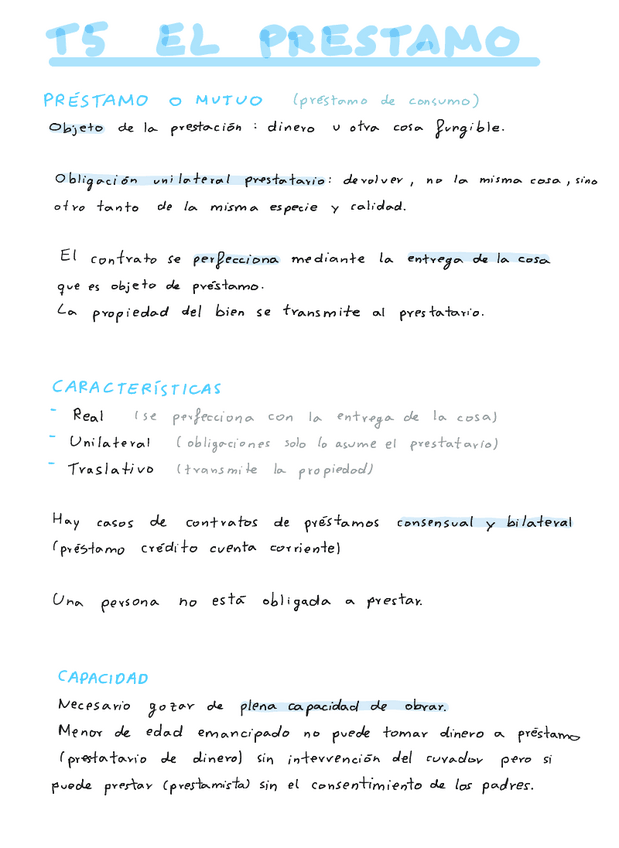 T5 EL PRESTAMO
PRÉSTAMO O MUTUO (préstamo de consumo)
Objeto de la prestación : dinero u otra cosa fungible.
Obligación unilateral prestatario: devolver, no la misma cosa, sino
otro tanto de la misma especie y calidad.
El contrato se perfecciona mediante la entrega de la cosa
que es objeto de préstamo.
La propiedad del bien se transmite al prestatario.
CARACTERÍSTICAS
- Real (se perfecciona con la entrega de la cosa)
- Unilateral (obligaciones solo lo asume el prestatario)
- Traslativo (transmite la propiedad)
Hay casos de contratos de préstamos consensual y bilateral
(préstamo crédito cuenta corriente)
Una persona no está obligada a prestar.
CAPACIDAD
Necesario gozar de plena capacidad de obrar.
Menor de edad emancipado no puede tomar dinero a préstamo
(prestatario de dinero) sin intervención del curador pero si
puede prestar (prestamista) sin el consentimiento de los padres.